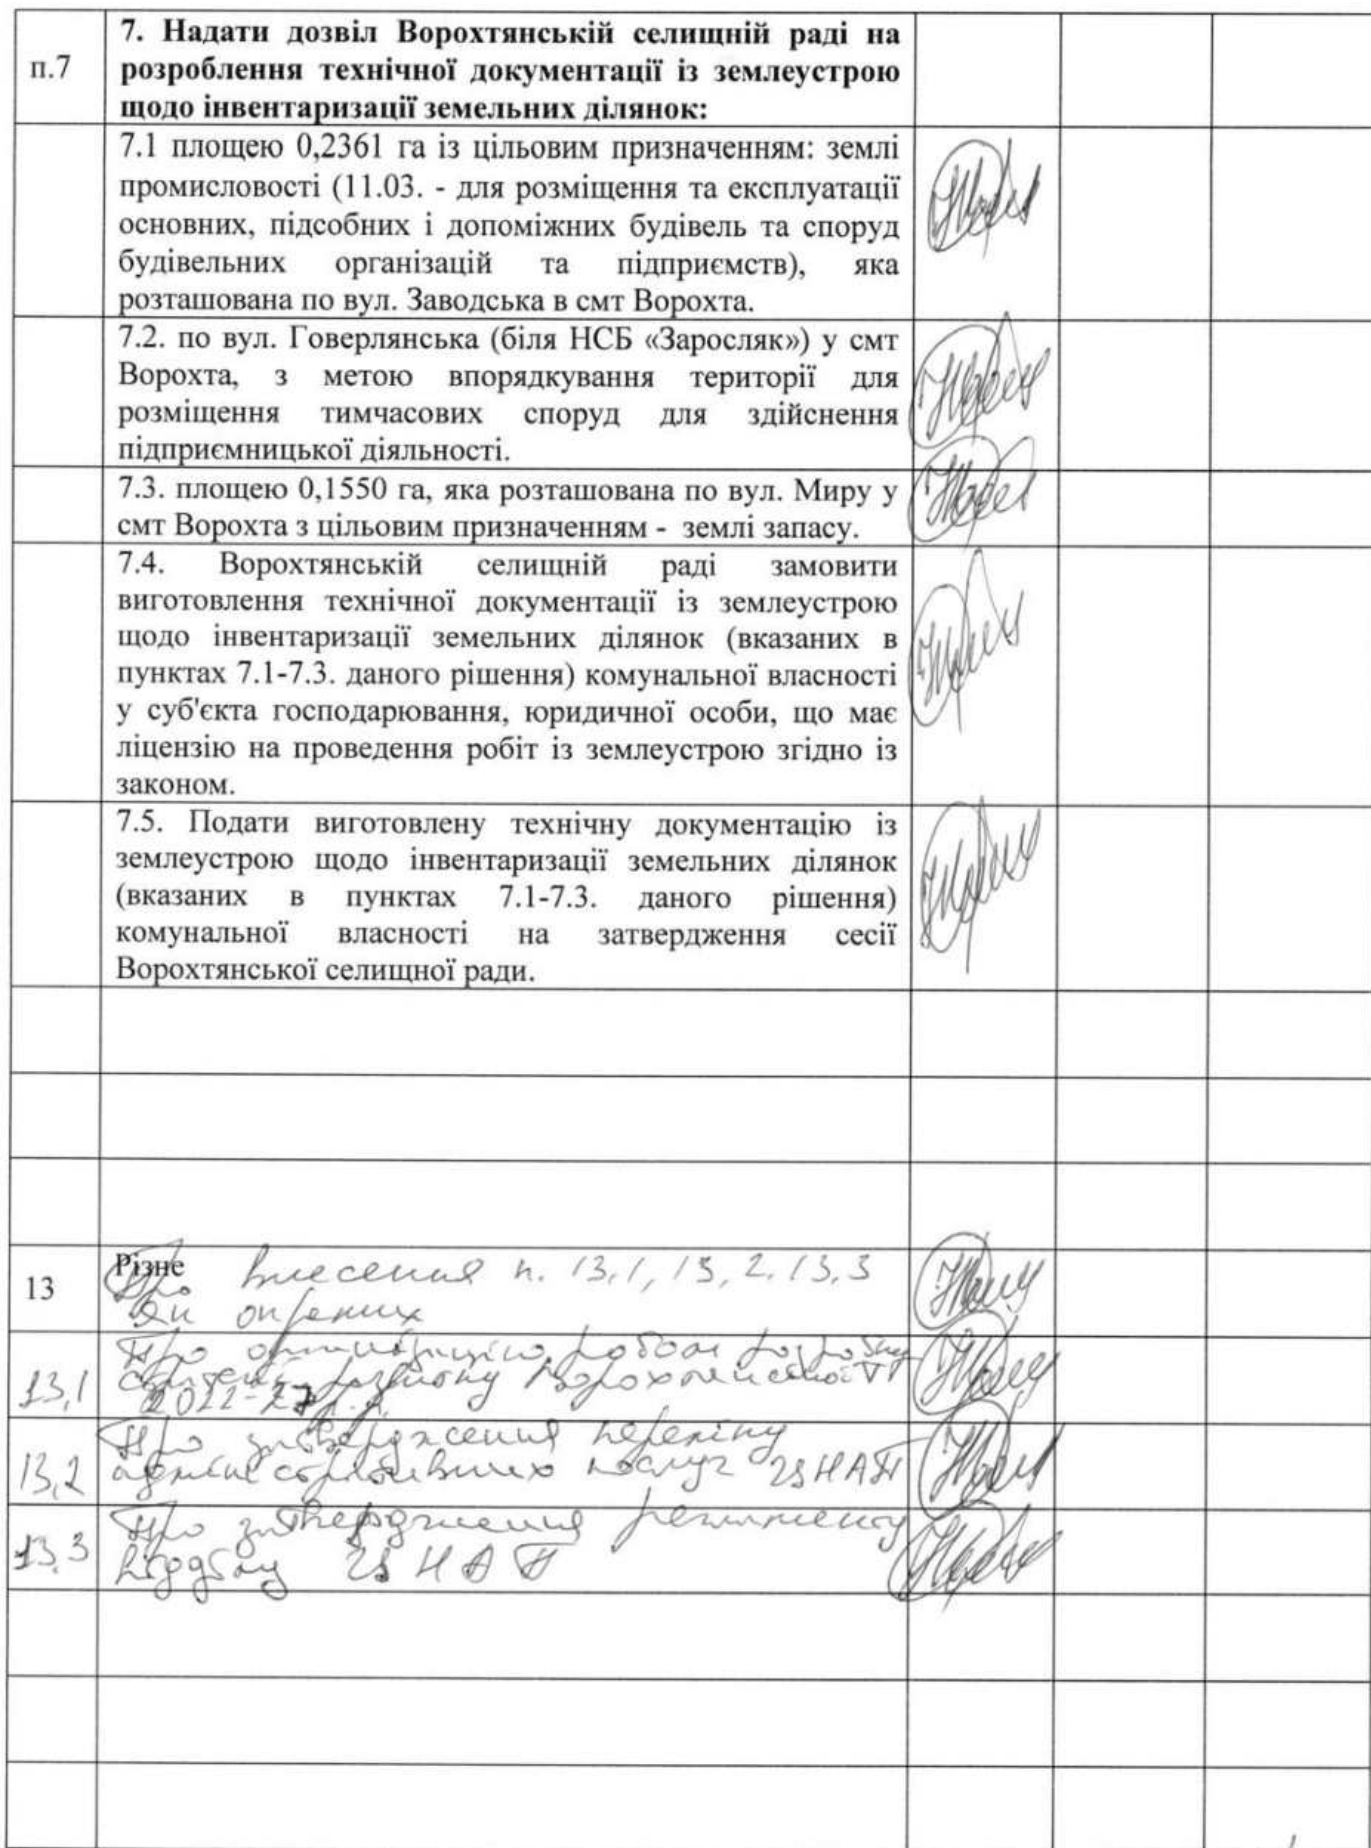 п.7
7. Надати дозвіл Ворохтянській селищній раді на
розроблення технічної документації із землеустрою
щодо інвентаризації земельних ділянок:
7.1 площею 0,2361 га із цільовим призначенням: землі
промисловості (11.03. - для розміщення та експлуатації
основних, підсобних і допоміжних будівель та споруд
будівельних організацій та підприємств), яка
розташована по вул. Заводська в смт Ворохта.
7.2. по вул. Говерлянська (біля НСБ «Заросляк») у смт
Ворохта, з метою впорядкування території для
розміщення тимчасових споруд для здійснення
підприємницької діяльності.
7.3. площею 0,1550 га, яка розташована по вул. Миру у
смт Ворохта з цільовим призначенням - землі запасу.
7.4. Ворохтянській селищній раді замовити
виготовлення технічної документації із землеустрою
щодо інвентаризації земельних ділянок (вказаних в
пунктах 7.1-7.3. даного рішення) комунальної власності
у суб'єкта господарювання, юридичної особи, що має
ліцензію на проведення робіт із землеустрою згідно із
законом.
7.5. Подати виготовлену технічну документацію із
землеустрою щодо інвентаризації земельних ділянок
(вказаних в пунктах 7.1-7.3. даного рішення)
комунальної власності на затвердження сесії
Ворохтянської селищної ради.
Різне
13 Про внесення п. 13,1, 13,2, 13,3
як окремих
Про організацію
13,1 розвитку Ворохтянської ТГ
2022-27
Про затвердження переліку
13,2 адміністративних послуг ЦНАП
Про затвердження регламенту
13.3 відділу ЦНАП